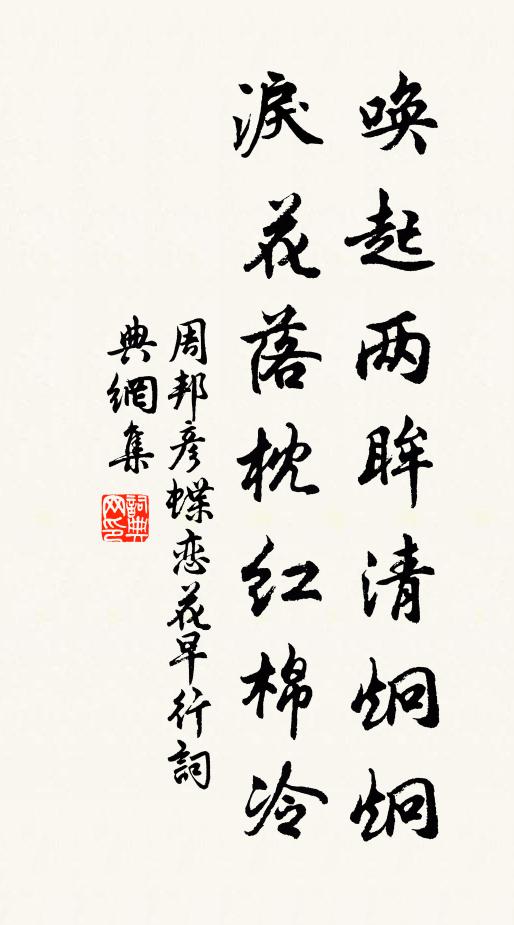 唤起两眸清炯炯
淚花落枕红棉冷
周邦彦蝶恋花早行詞
典網集
詞典網印